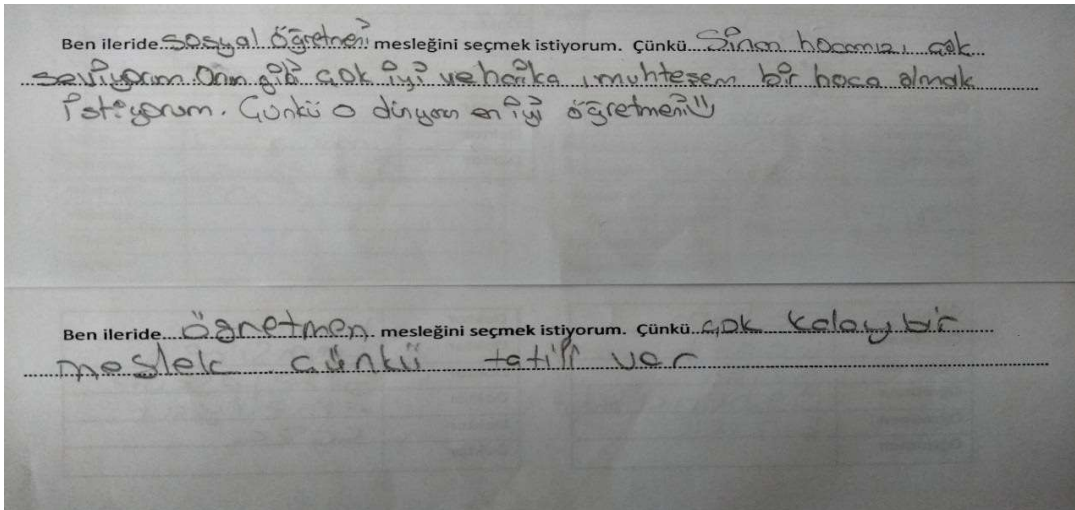 Ben ileride sosyal öğretmeni mesleğini seçmek istiyorum. Çünkü Sinan hocamızı çok
seviyorum. Onun gibi çok iyi ve harika, muhteşem bir hoca olmak
istiyorum. Çünkü o dünyanın en iyi öğretmeni
Ben ileride öğretmen mesleğini seçmek istiyorum. Çünkü çok kolay bir
meslek çünkü tatili var